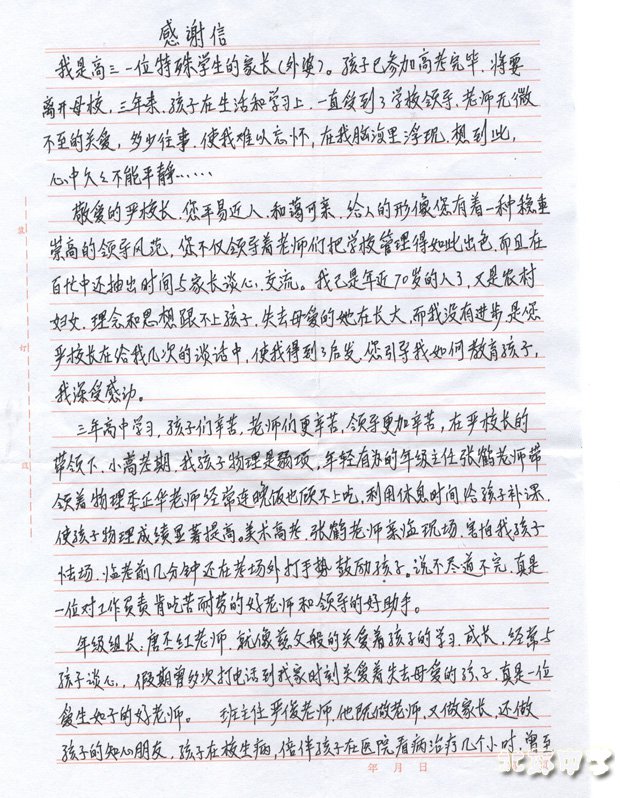 感谢信
我是高三一位特殊学生的家长(外婆)。孩子已参加高考完毕,将要
离开母校,三年来,孩子在生活和学习上,一直受到了学校领导,老师无微
不至的关爱,多少往事,使我难以忘怀,在我脑海里浮现,想到此,
心中久久不能平静……
敬爱的严校长,您平易近人,和蔼可亲,给人的形像您有着一种稳重
崇高的领导风范,您不仅领导着老师们把学校管理得如此出色,而且在
百忙中还抽出时间与家长谈心,交流。我已是年近70岁的人了,又是农村
妇女,理念和思想跟不上孩子,失去母爱的她在长大,而我没有进步,是您
严校长在给我几次的谈话中,使我得到了启发,您引导我如何教育孩子,
我深受感动。
三年高中学习,孩子们辛苦,老师们更辛苦,领导更加辛苦,在严校长的
带领下,小高考期,我孩子物理是弱项,年轻有为的年级主任张鹤老师带
领着物理季正华老师经常连晚饭也顾不上吃,利用休息时间给孩子补课,
使孩子物理成绩显著提高。美术高考,张鹤老师亲临现场,害怕我孩子
怯场,临考前几分钟还在考场外打手势鼓励孩子。说不尽道不完,真是
一位对工作负责肯吃苦耐劳的好老师和领导的好助手。
年级组长,唐丕红老师,就像慈父般的关爱着孩子的学习,成长,经常与
孩子谈心,假期曾多次打电话到我家时刻关爱着失去母爱的孩子,真是一位
爱生如子的好老师。 班主任严俊老师,他既做老师,又做家长,还做
孩子的知心朋友,孩子在校生病,陪伴孩子在医院看病治疗几个小时,曾至
年 月 日
装
订
线